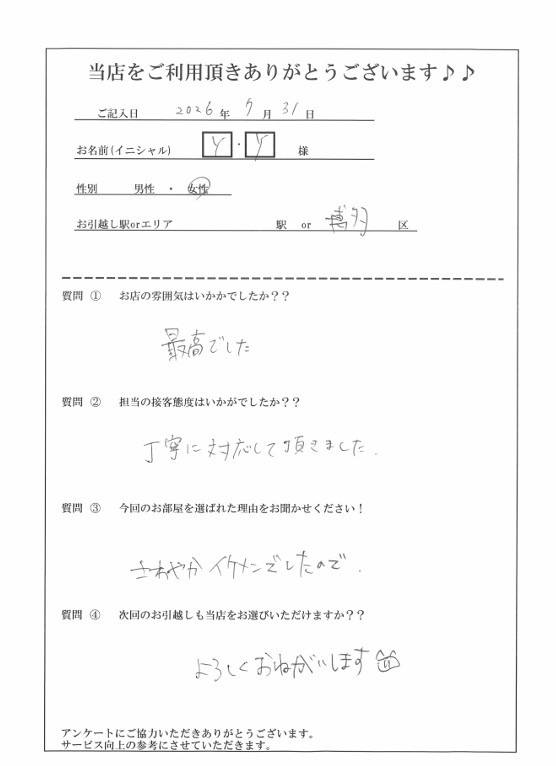 当店をご利用頂きありがとうございます♪♪
ご記入日 2026年 月 31日
お名前(イニシャル) Y・Y 様
性別 男性 ・ 女性
お引越し駅orエリア 駅 or 博多 区
質問 ① お店の雰囲気はいかかでしたか？？
最高でした
質問 ② 担当の接客態度はいかがでしたか？？
丁寧に対応して頂きました.
質問 ③ 今回のお部屋を選ばれた理由をお聞かせください！
さわやかイケメンでしたので.
質問 ④ 次回のお引越しも当店をお選びいただけますか？？
よろしくおねがいします
アンケートにご協力いただきありがとうございます。
サービス向上の参考にさせていただきます。